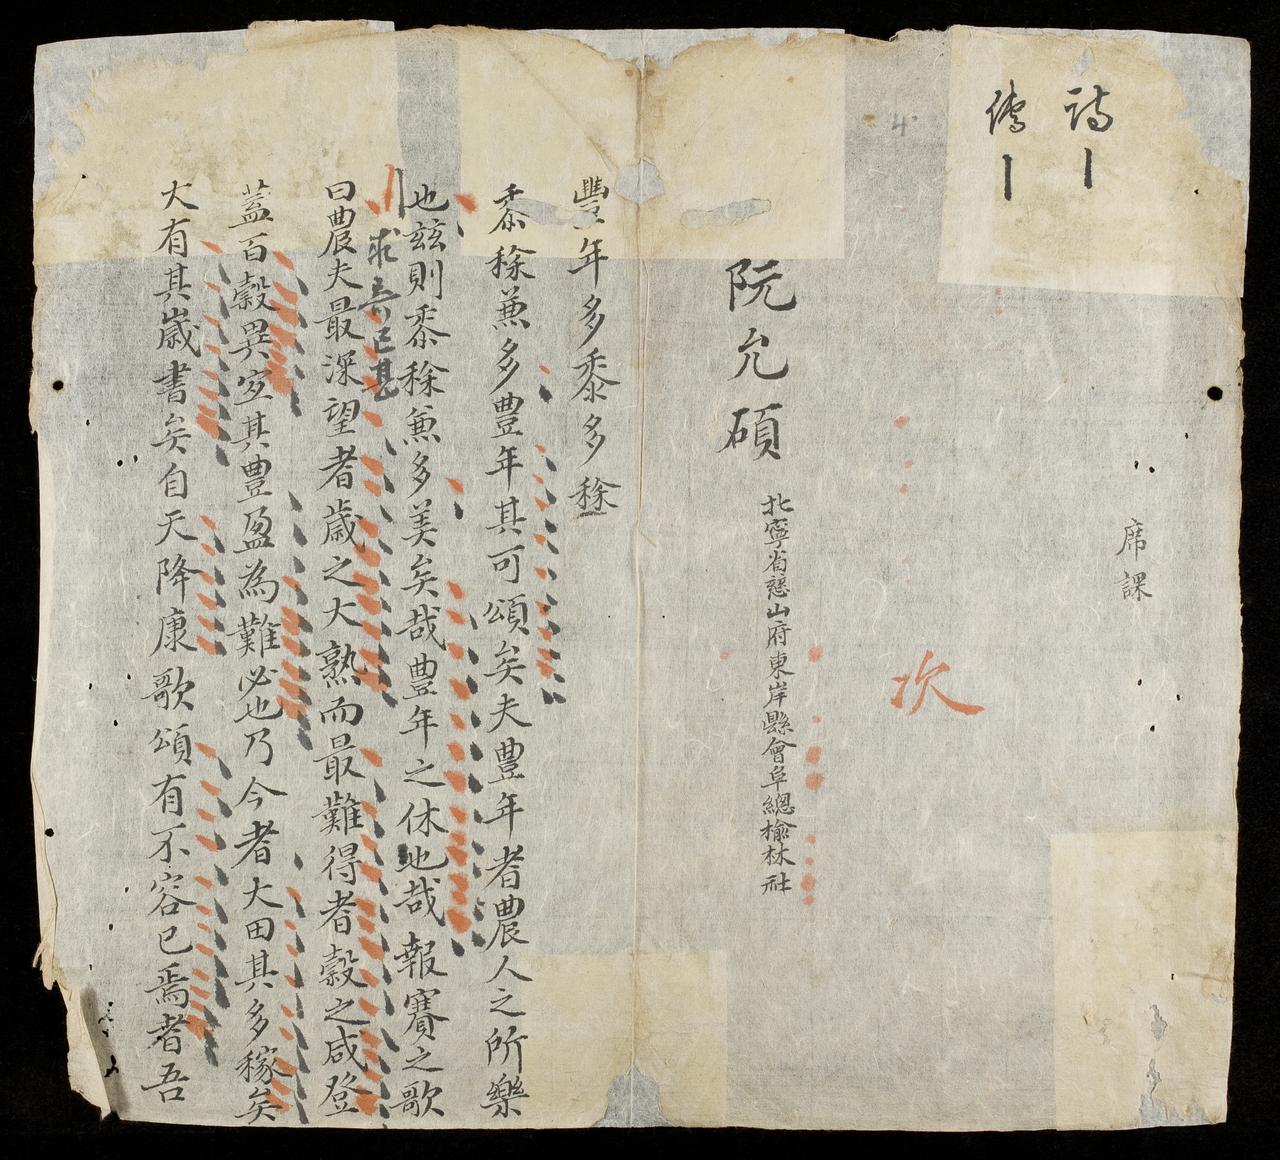 詩
傳
席課
次
阮允碩
北寧省慈山府東岸縣會阜總榆林社
豐年多黍多稌
黍稌兼多豊年其可頌矣夫豊年者農人之所樂
也兹則黍稌兼多美矣哉豊年之休也哉報賽之歌
求 已甚
曰農夫最深望者歲之大熟而最難得者穀之咸登
蓋百穀異宜其豊盈為難必也乃今者大田其多稼矣
大有其歲書矣自天降康歌頌有不容已焉者吾